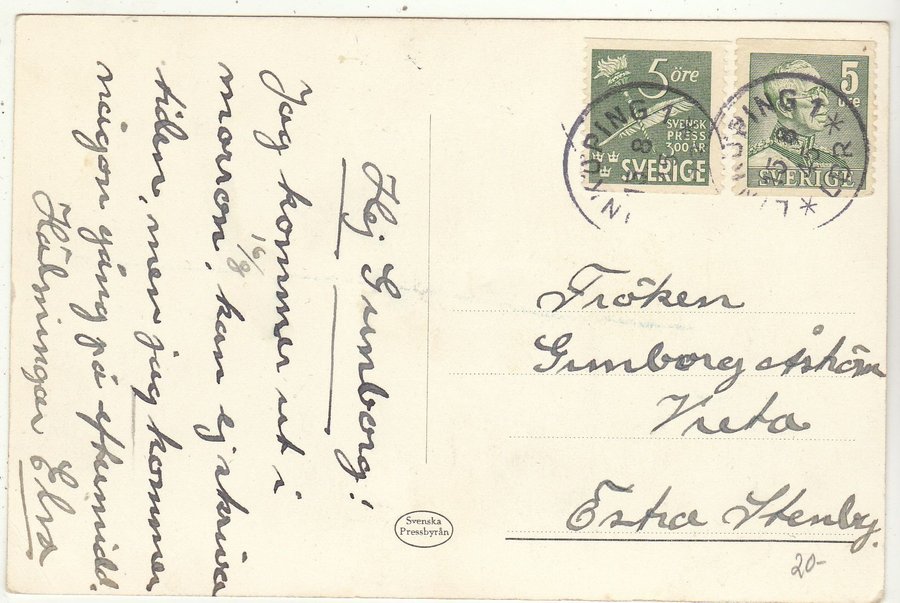 Hej Gunborg!
Jag kommer ut i
morron, 16/8 kan ej skriva
tiden, men jag kommer
någon gång på eftermidd.
Hälsningar Elva
5 öre
SVENSK
PRESS
300 ÅR
SVERIGE
5
öre
SVERIGE
LINKÖPING 1
15 8
45
LINKÖPING 1
15 8
45
* LBR *
Fröken
Gunborg Åström
Vreta
Östra Stenby.
Svenska
Pressbyrån
20-